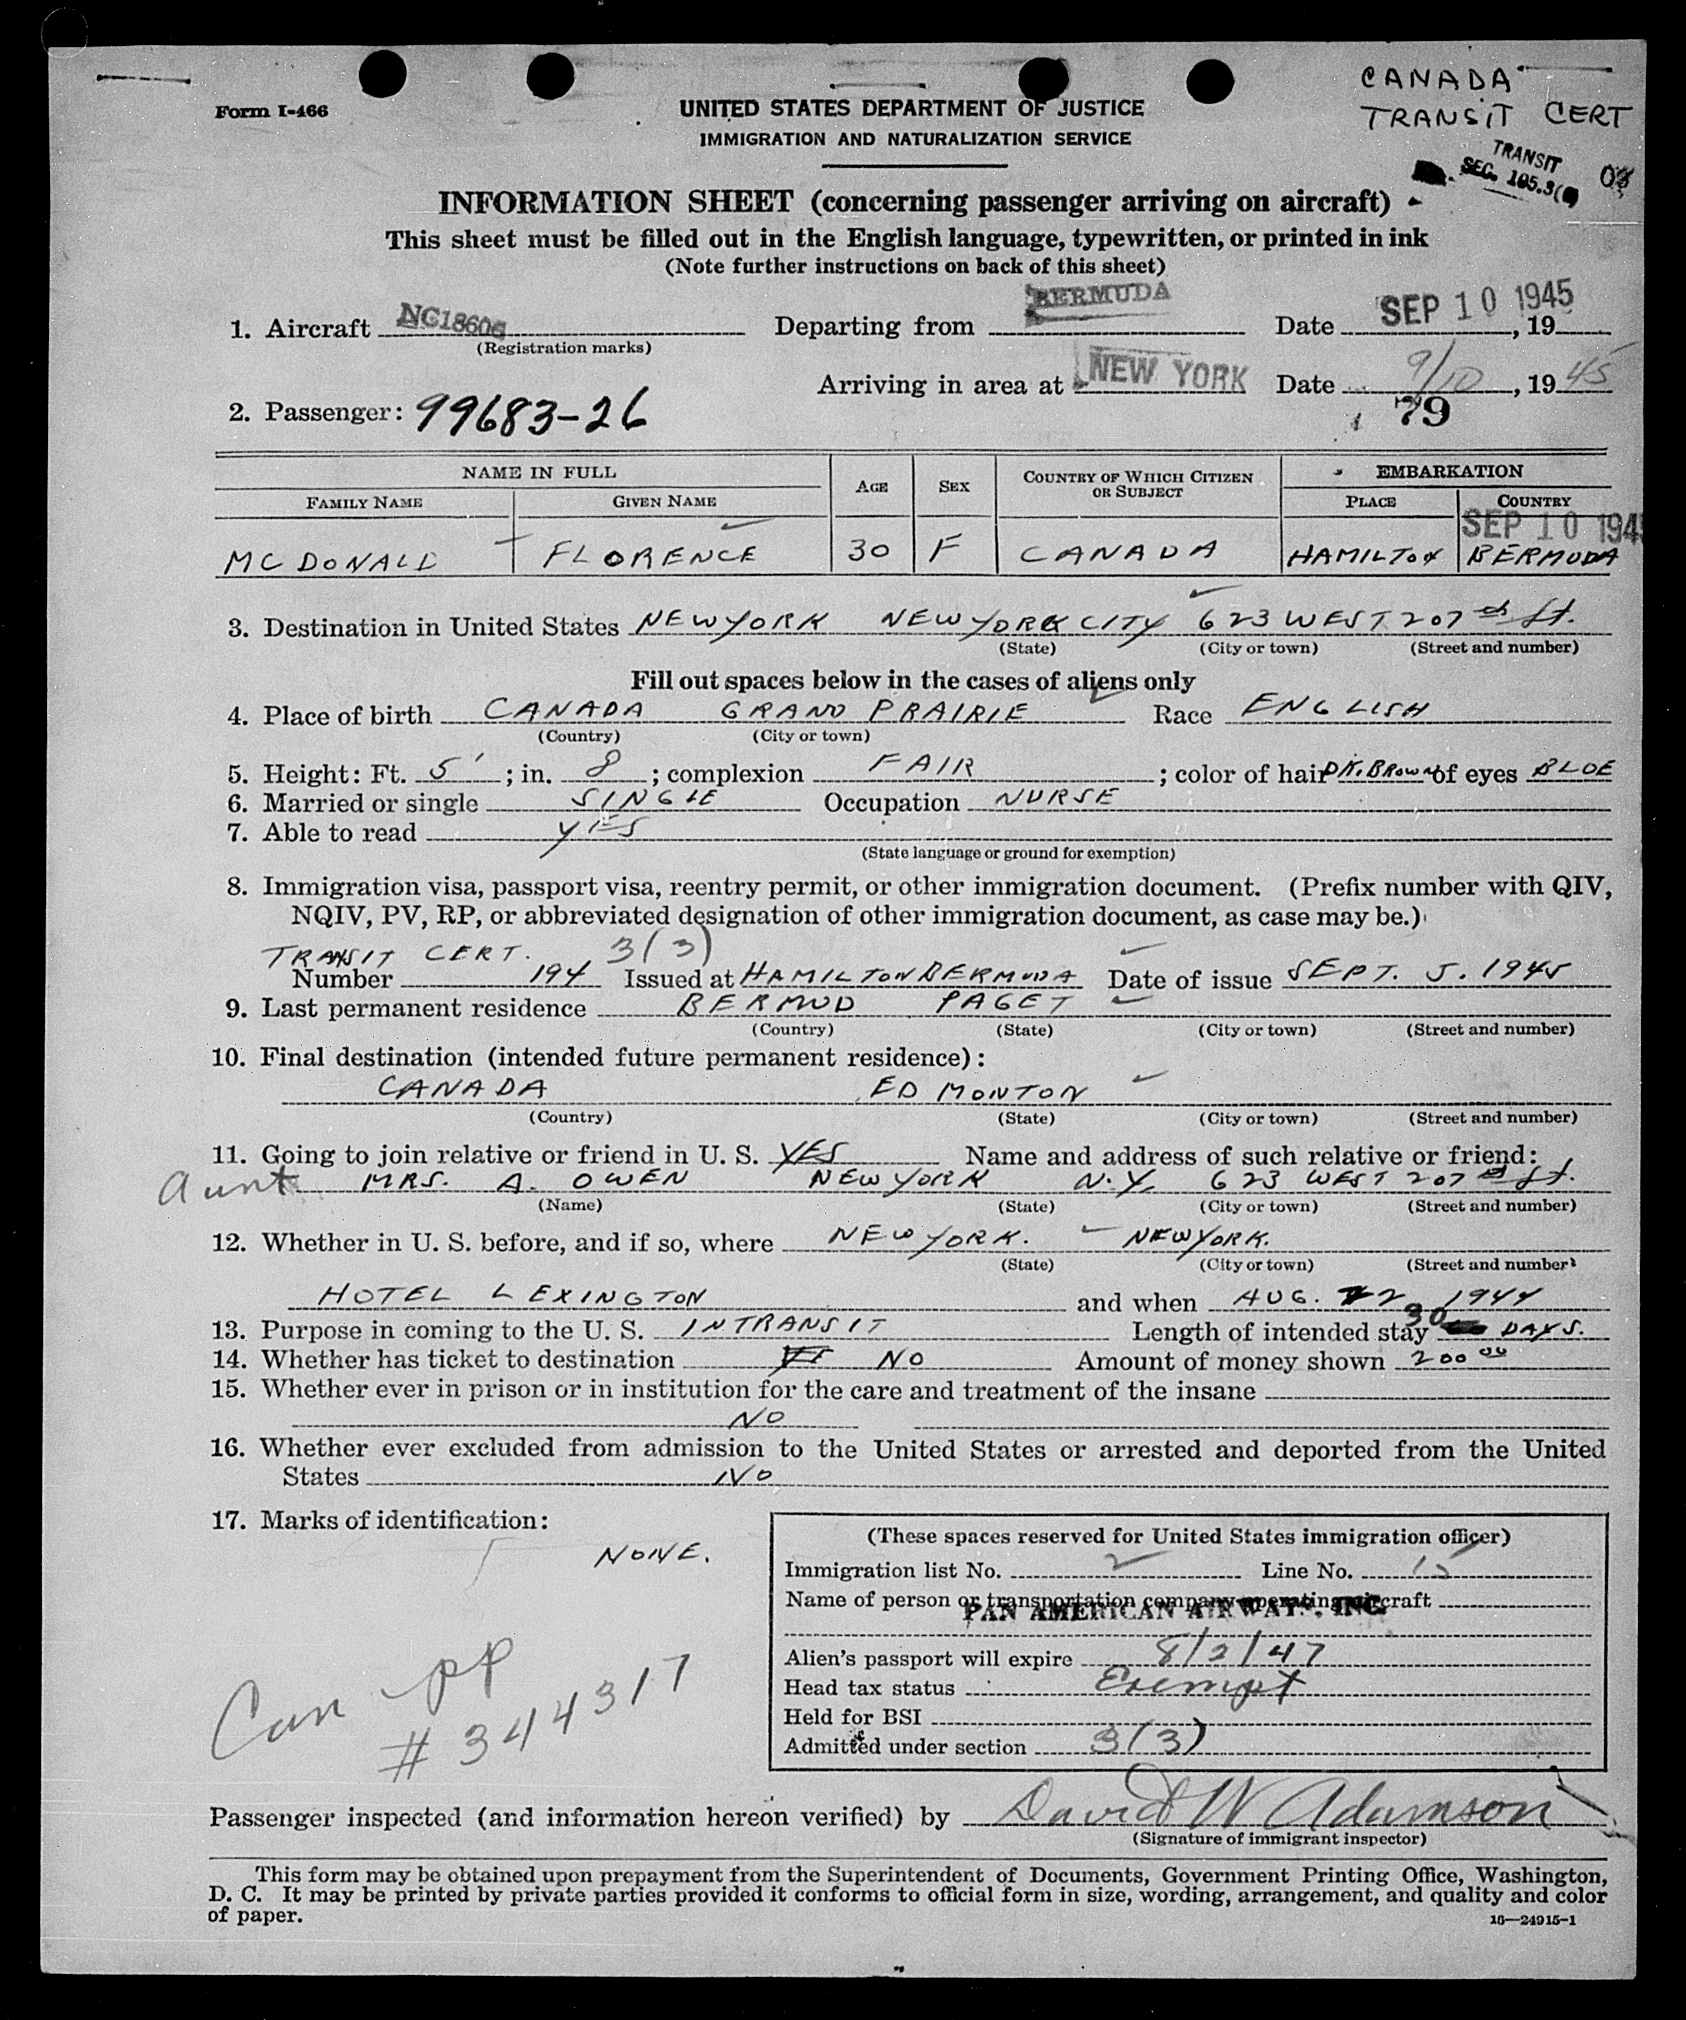 CANADA
TRANSIT CERT
Form I-466
UNITED STATES DEPARTMENT OF JUSTICE
IMMIGRATION AND NATURALIZATION SERVICE
TRANSIT
SEC. 105.3(
INFORMATION SHEET (concerning passenger arriving on aircraft)
This sheet must be filled out in the English language, typewritten, or printed in ink
(Note further instructions on back of this sheet)
1. Aircraft NC18606 Departing from BERMUDA Date SEP 10 1945, 19
(Registration marks)
Arriving in area at NEW YORK Date 9/10, 19 45
2. Passenger: 99683-26 79
NAME IN FULL AGE SEX COUNTRY OF WHICH CITIZEN OR SUBJECT EMBARKATION
FAMILY NAME GIVEN NAME PLACE COUNTRY
SEP 10 194
MCDONALD FLORENCE 30 F CANADA HAMILTON BERMUDA
3. Destination in United States NEW YORK NEW YORK CITY 623 WEST 207th St.
(State) (City or town) (Street and number)
Fill out spaces below in the cases of aliens only
4. Place of birth CANADA GRAND PRAIRIE Race ENGLISH
(Country) (City or town)
5. Height: Ft. 5' ; in. 8 ; complexion FAIR ; color of hair DK. BROWN of eyes BLUE
6. Married or single SINGLE Occupation NURSE
7. Able to read YES
(State language or ground for exemption)
8. Immigration visa, passport visa, reentry permit, or other immigration document. (Prefix number with QIV,
NQIV, PV, RP, or abbreviated designation of other immigration document, as case may be.)
TRANSIT CERT. 3(3)
Number 194 Issued at HAMILTON BERMUDA Date of issue SEPT. 5. 1945
9. Last permanent residence BERMUD PAGET
(Country) (State) (City or town) (Street and number)
10. Final destination (intended future permanent residence):
CANADA EDMONTON
(Country) (State) (City or town) (Street and number)
11. Going to join relative or friend in U. S. YES Name and address of such relative or friend:
Aunt MRS. A. OWEN NEW YORK N.Y. 623 WEST 207th St.
(Name) (State) (City or town) (Street and number)
12. Whether in U. S. before, and if so, where NEW YORK. NEW YORK.
(State) (City or town) (Street and number)
HOTEL LEXINGTON and when AUG. 22 1944
13. Purpose in coming to the U. S. INTRANSIT Length of intended stay 30 DAYS.
14. Whether has ticket to destination NO Amount of money shown 200 00
15. Whether ever in prison or in institution for the care and treatment of the insane
NO
16. Whether ever excluded from admission to the United States or arrested and deported from the United
States NO
17. Marks of identification:
NONE.
Can pp
# 344317
(These spaces reserved for United States immigration officer)
Immigration list No. 2 Line No. 15
Name of person or transportation company operating aircraft
PAN AMERICAN AIRWAYS, INC.
Alien's passport will expire 8/2/47
Head tax status Exempt
Held for BSI
Admitted under section 3(3)
Passenger inspected (and information hereon verified) by David W Adamson
(Signature of immigrant inspector)
This form may be obtained upon prepayment from the Superintendent of Documents, Government Printing Office, Washington,
D. C. It may be printed by private parties provided it conforms to official form in size, wording, arrangement, and quality and color
of paper.
16—24915-1